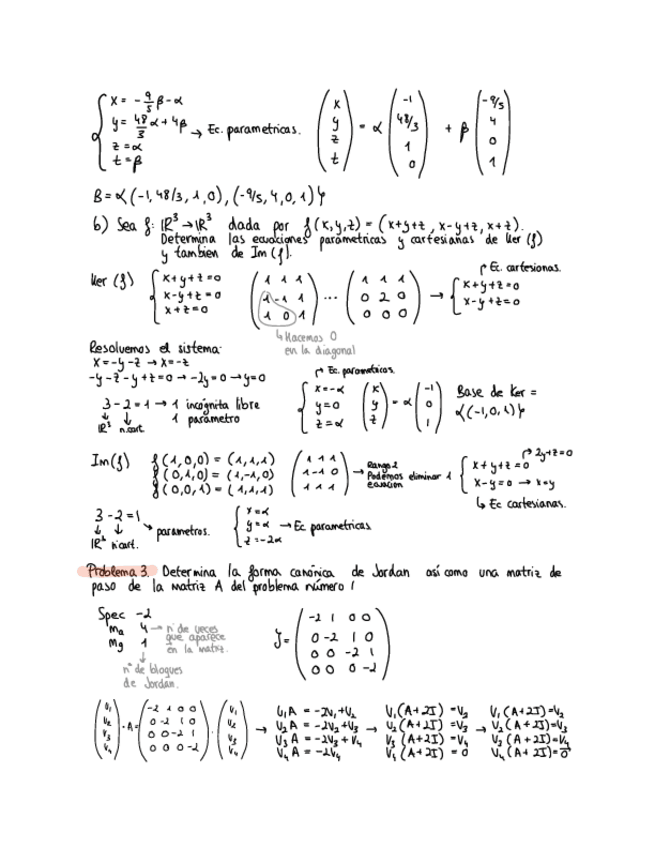 x = -9/5 β - α
y = 48/3 α + 4β → Ec. parametricas.
z = α
t = β
(x y z t) = α (-1 48/3 1 0) + β (-9/5 4 0 1)
B = {(-1, 48/3, 1, 0), (-9/5, 4, 0, 1)}
b) Sea f: ℝ³ → ℝ³ dada por f(x,y,z) = (x+y+z, x-y+z, x+z).
Determina las ecuaciones paramétricas y cartesianas de Ker (f)
y tambien de Im (f).
Ec. cartesianas.
Ker (f) { x+y+z=0 (1 1 1) ... (1 1 1) → { x+y+z=0
x-y+z=0 (1 -1 1) (0 2 0) x-y+z=0
x+z=0 (1 0 1) (0 0 0)
↳ Hacemos 0
en la diagonal
Resolvemos el sistema:
x=-y-z → x=-z
-y-z-y+z=0 → -2y=0 → y=0
3-2=1 → 1 incógnita libre
ℝ³ n.cart. 1 parámetro
Ec. parametricas.
x=-α
y=0
z=α
(x y z) = α (-1 0 1)
Base de Ker =
{(-1,0,1)}
Im(f) f(1,0,0) = (1,1,1)
f(0,1,0) = (1,-1,0)
f(0,0,1) = (1,1,1)
(1 1 1)
(1 -1 0)
(1 1 1)
→ Rango 2
Podemos eliminar 1
ecuacion
x+y+z=0 → 2y+z=0
x-y=0 → x=y
↳ Ec cartesianas.
3-2=1 → parametros.
ℝ³ n.cart.
x=α
y=α → Ec parametricas
z=-2α
Problema 3. Determina la forma canónica de Jordan así como una matriz de
paso de la matriz A del problema número 1
Spec -2
ma 4 → nº de veces
que aparece
en la matriz.
mg 1
nº de bloques
de Jordan.
J = (-2 1 0 0)
(0 -2 1 0)
(0 0 -2 1)
(0 0 0 -2)
(v₁ v₂ v₃ v₄) · A = (-2 1 0 0 / 0 -2 1 0 / 0 0 -2 1 / 0 0 0 -2) · (v₁ v₂ v₃ v₄)
→ v₁A = -2v₁+v₂ → v₁(A+2I) = v₂ → v₁(A+2I)=v₂
v₂A = -2v₂+v₃ v₂(A+2I) = v₃ v₂(A+2I)=v₃
v₃A = -2v₃+v₄ v₃(A+2I) = v₄ v₃(A+2I)=v₄
v₄A = -2v₄ v₄(A+2I) = 0 v₄(A+2I)=0